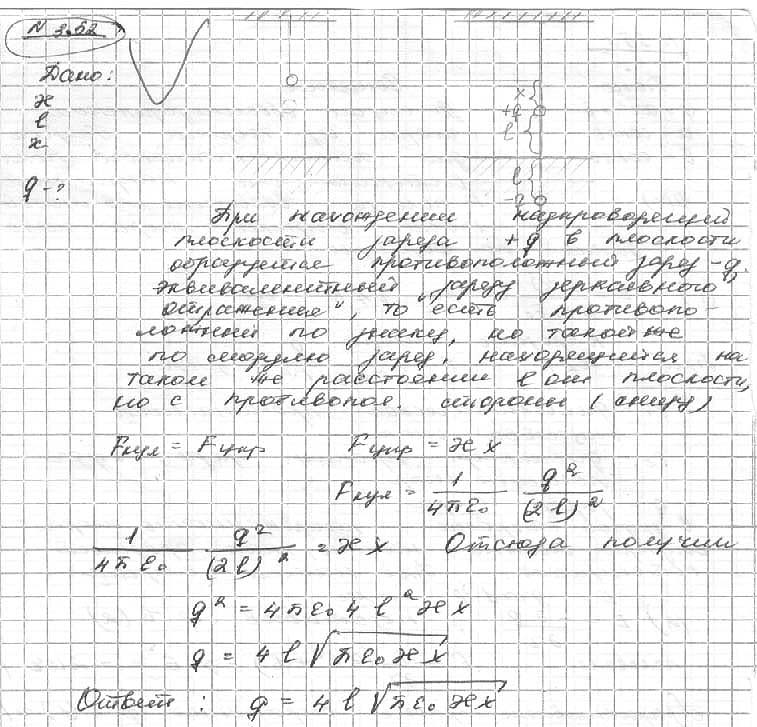 N 3.52
Дано:
æ
l
x
q - ?
x
+q
l
l
-q
При нахождении над проводящей
плоскости заряда +q в плоскости
образуется противоположный заряд -q,
эквивалентный „заряду зеркального
отражения", то есть противопо-
ложный по знаку, но такой же
по модулю заряд, находящийся на
таком же расстоянии l от плоскости,
но с противопол. стороны (снизу)
Fкул = Fупр Fупр = æ x
Fкул = 1/(4πε₀) q²/(2l)²
1/(4πε₀) q²/(2l)² = æ x Отсюда получим
q² = 4πε₀ 4 l² æ x
q = 4 l √(πε₀ æ x)
Ответ : q = 4 l √(πε₀ æ x)